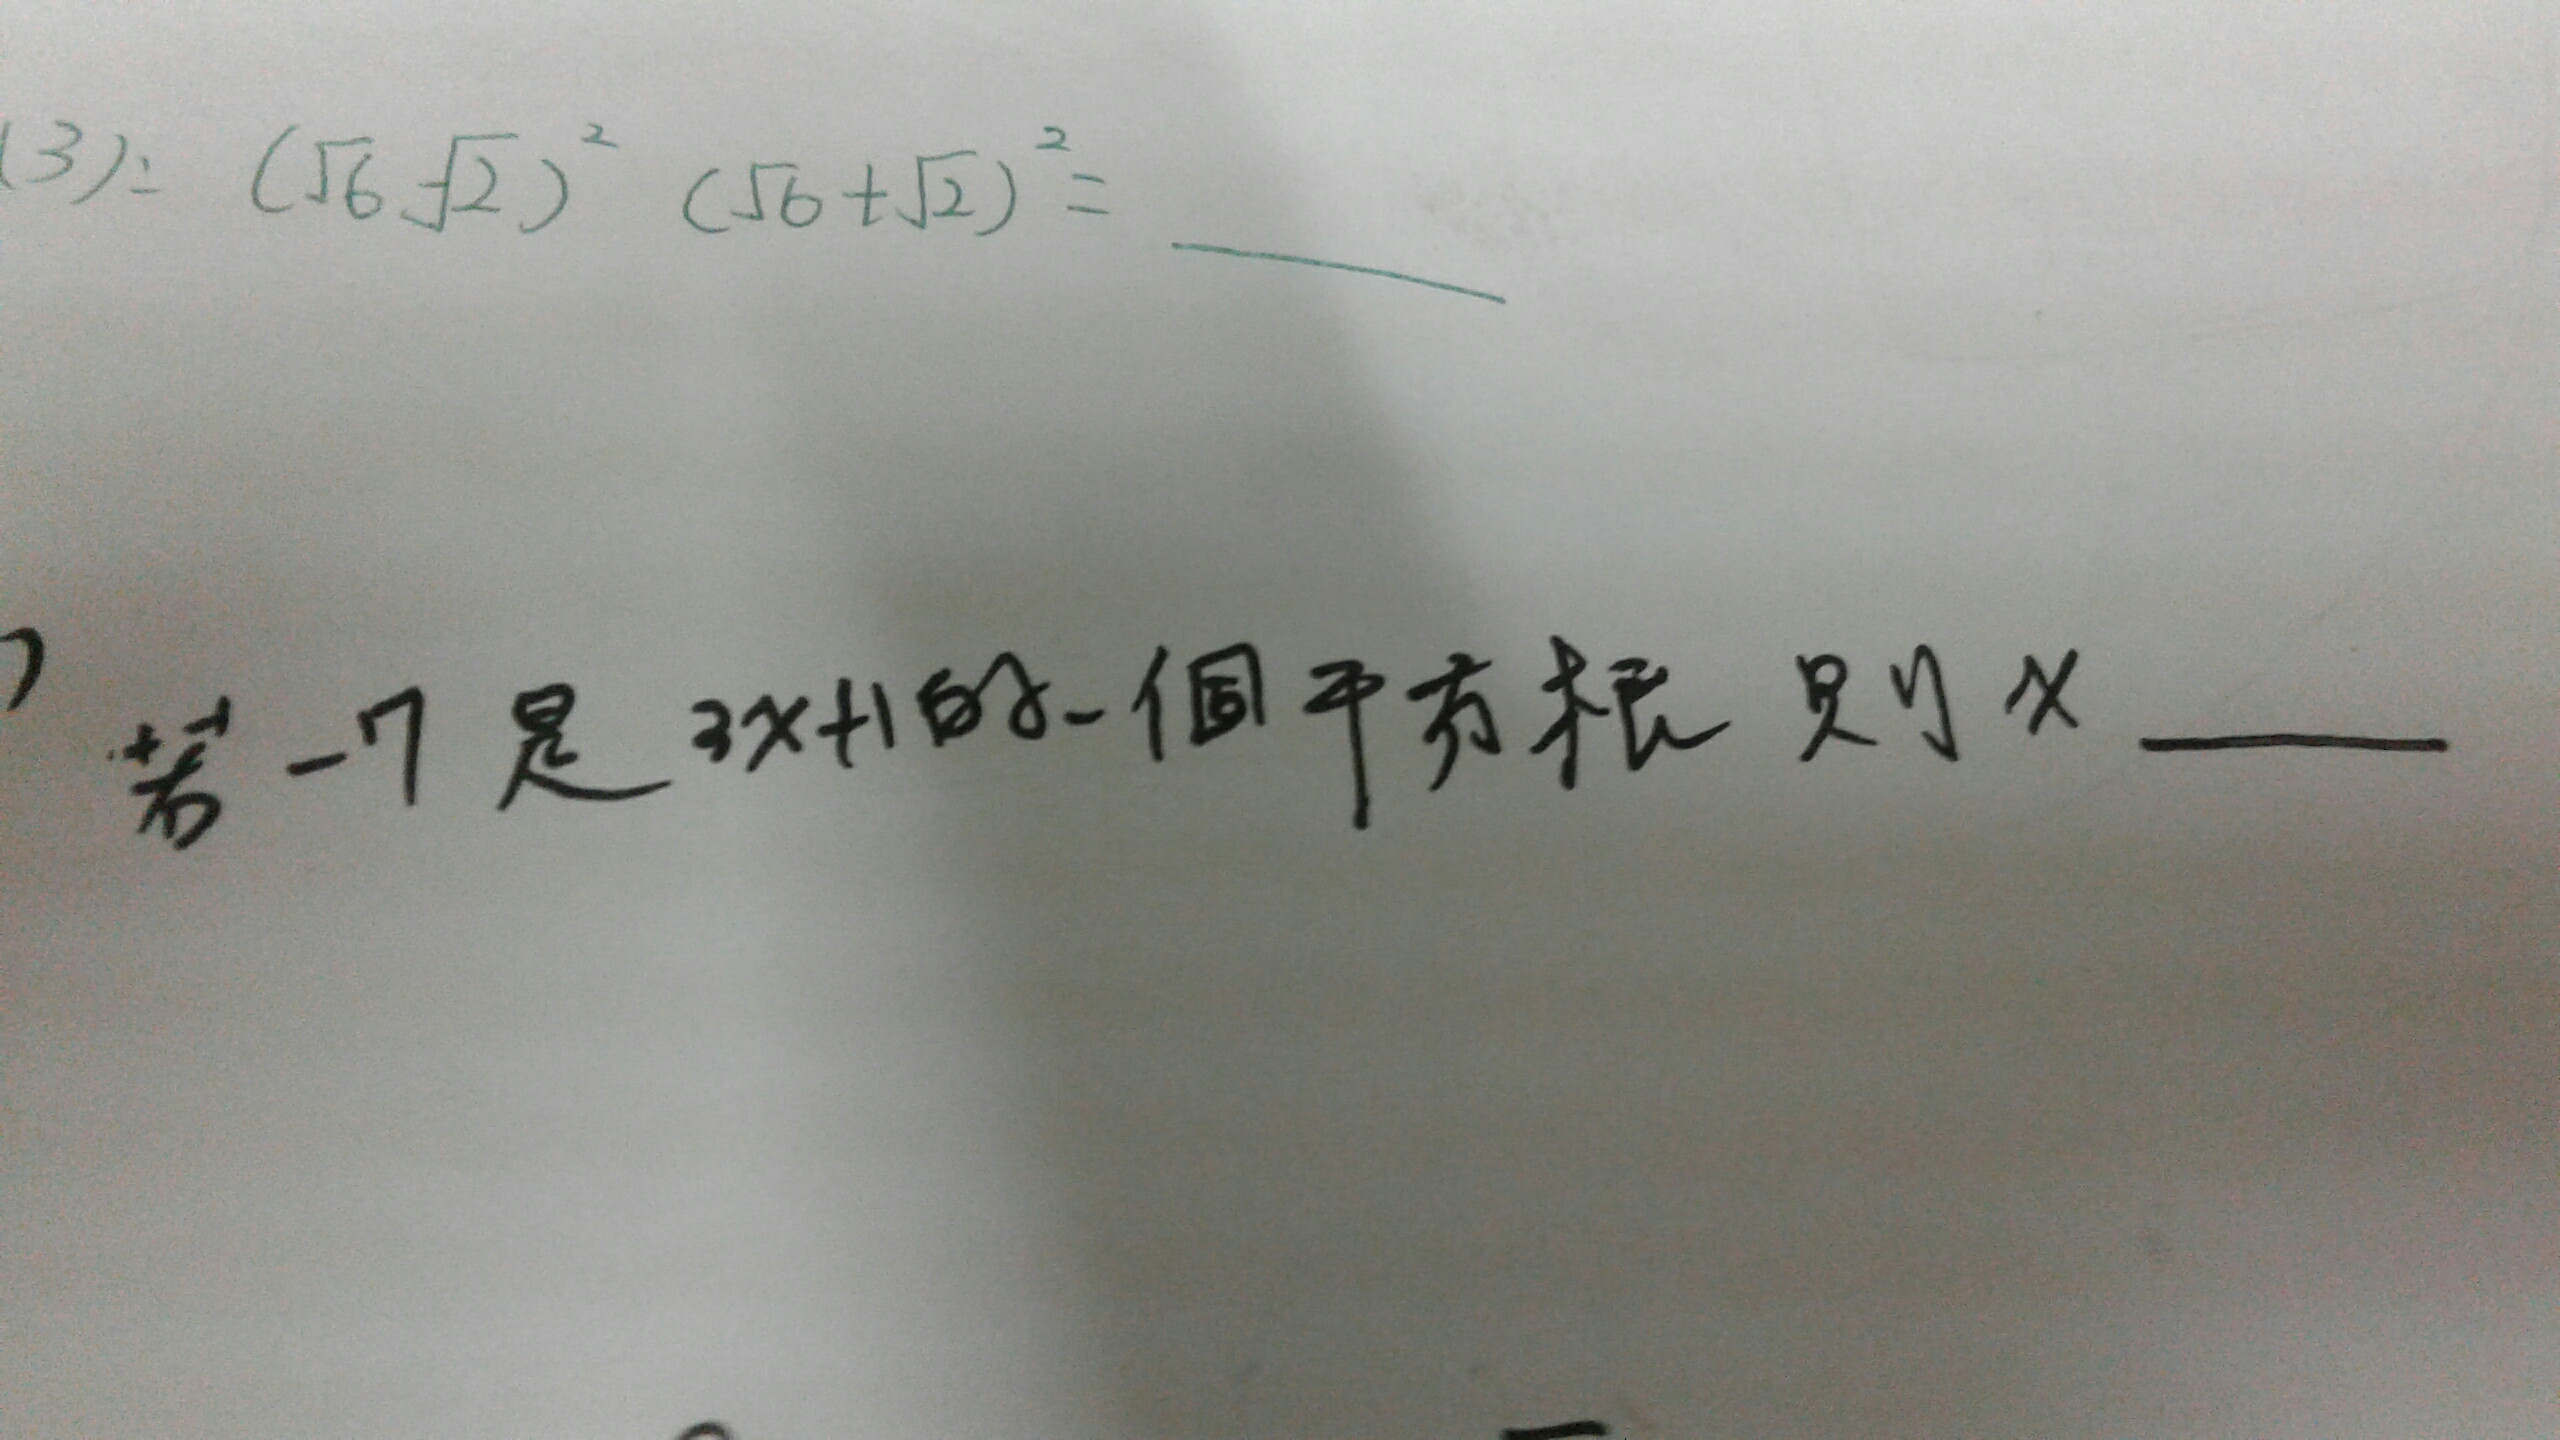 (3): (√6-√2)² (√6+√2)² = ____
) 若 -7 是 3x+1的一個平方根 則 x ____